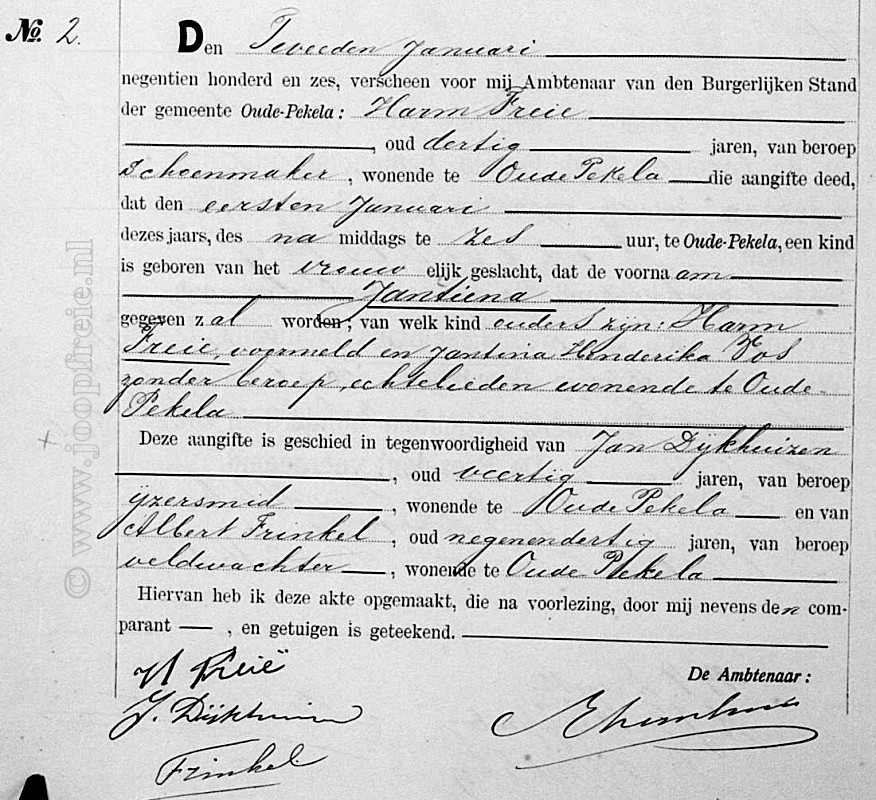 No. 2.
Den Tweeden Januari
negentien honderd en zes, verscheen voor mij Ambtenaar van den Burgerlijken Stand
der gemeente Oude-Pekela: Harm Freie
, oud dertig jaren, van beroep
Schoenmaker, wonende te Oude Pekela die aangifte deed,
dat den eersten Januari
dezes jaars, des na middags te zes uur, te Oude-Pekela, een kind
is geboren van het vrouwelijk geslacht, dat de voornaam
Jantiena
gegeven zal worden, van welk kind ouders zijn: Harm
Freie, voormeld en Jantina Henderika Vos
zonder beroep, echtelieden wonende te Oude-
Pekela
Deze aangifte is geschied in tegenwoordigheid van Jan Dijkhuizen
, oud veertig jaren, van beroep
ijzersmid, wonende te Oude Pekela en van
Albert Frinkel, oud negenendertig jaren, van beroep
veldwachter, wonende te Oude Pekela
Hiervan heb ik deze akte opgemaakt, die na voorlezing, door mij nevens den com-
parant, en getuigen is geteekend.
H Freië
De Ambtenaar:
J. Dijkhuizen
Frinkel
© www.joopfreie.nl